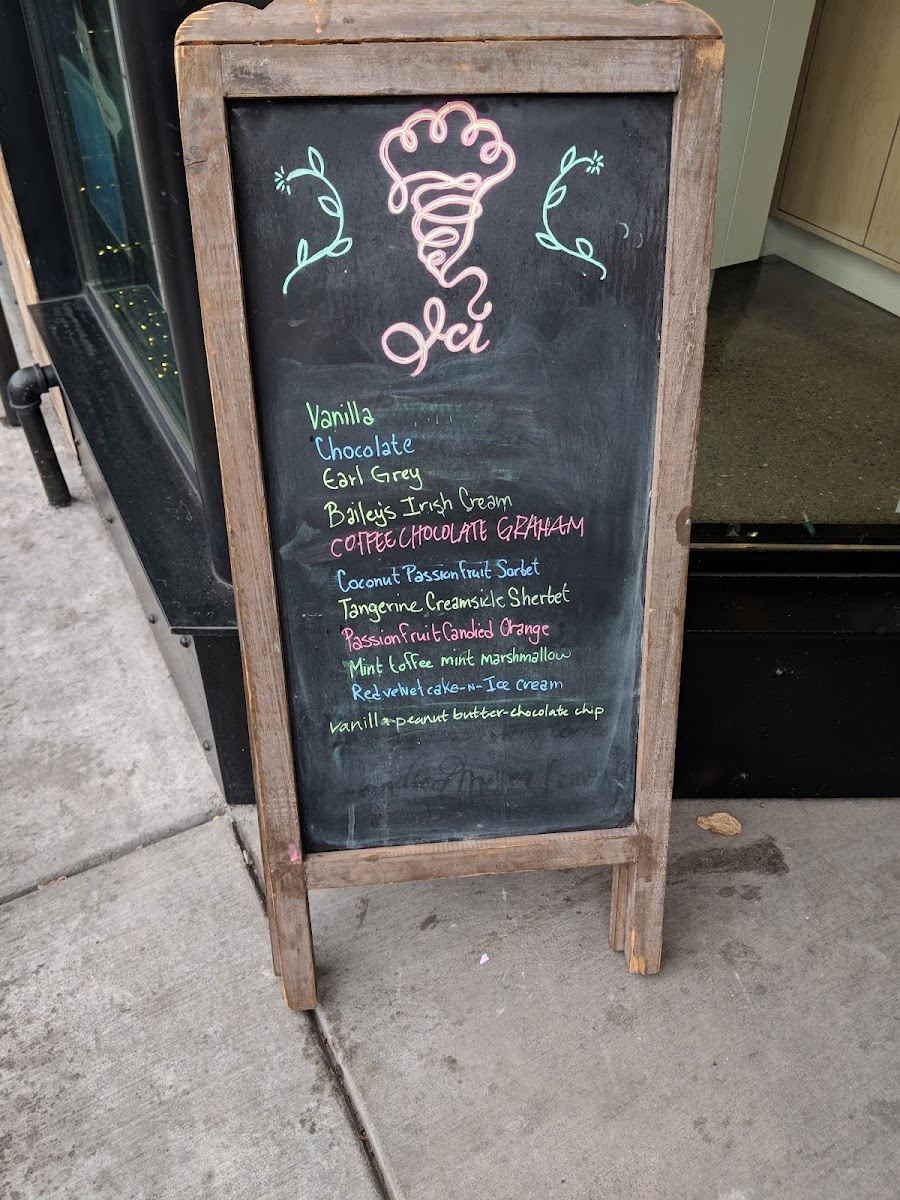 Ici
Vanilla
Chocolate
Earl Grey
Bailey's Irish Cream
COFFEE CHOCOLATE GRAHAM
Coconut Passionfruit Sorbet
Tangerine Creamsicle Sherbet
Passionfruit Candied Orange
Mint toffee mint marshmallow
Red velvet cake-n-Ice cream
vanilla-peanut butter-chocolate chip